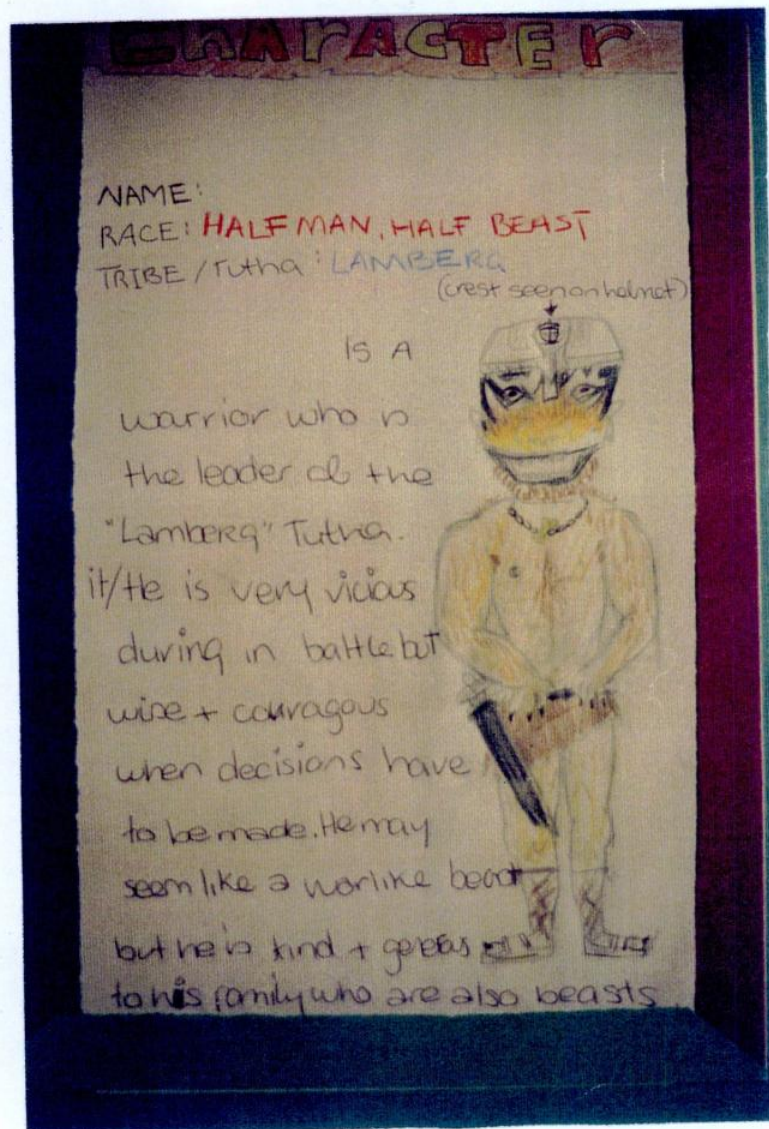 CHARACTER
NAME:
RACE: HALF MAN, HALF BEAST
TRIBE / Tutha : LAMBERG
(crest seen on helmet)
IS A
warrior who is
the leader of the
"Lamberg" Tutha.
it/He is very vicious
during in battle but
wise + couragous
when decisions have
to be made. He may
seem like a warlike beast
but he is kind + geneous
to his family who are also beasts